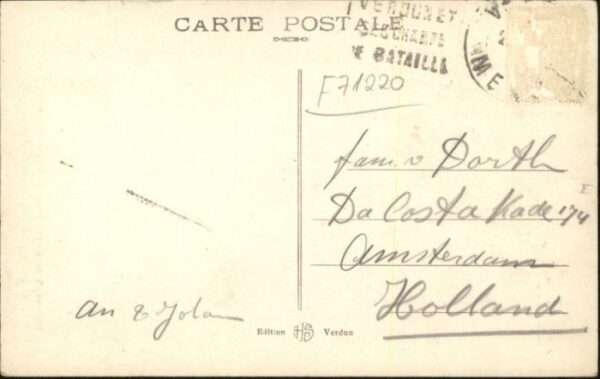 CARTE POSTALE
VERDUN ET
CHAMPS
BATAILLE
F71220
fam. v Dorth
Da Costa Kade 174 I
Amsterdam
Holland
An & Jolan
Edition HB Verdun